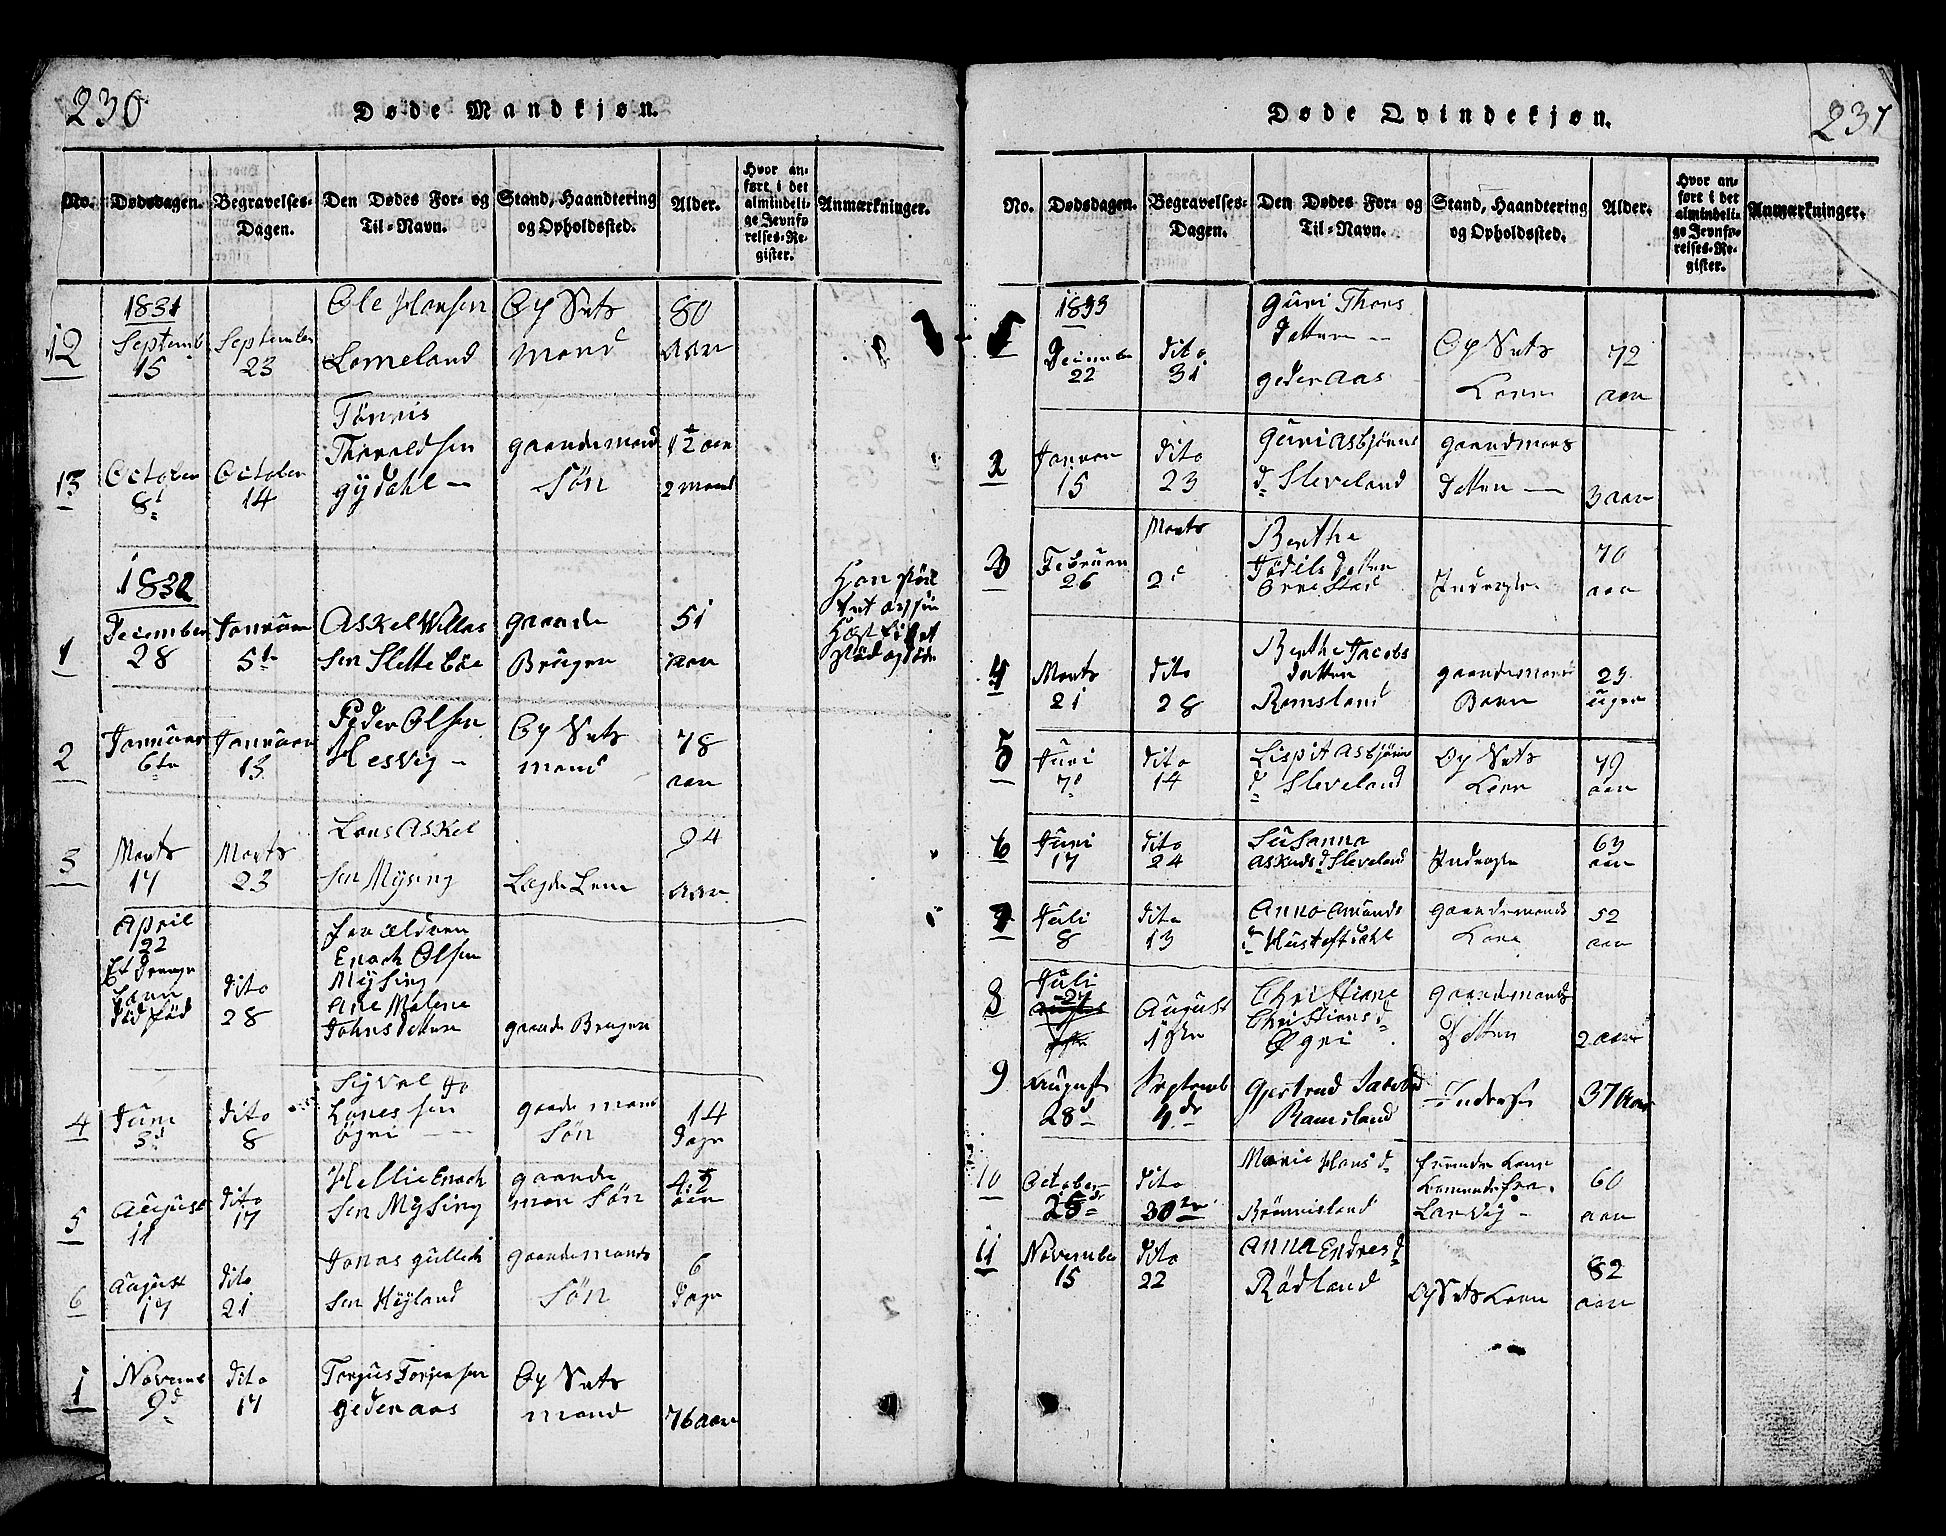 230
Døde Mandkjøn.
No.
Dødsdagen.
Begravelses-
Dagen.
Den Dødes For- og
Til-Navn.
Stand, Haandtering
og Opholdssted.
Alder.
Hvor an-
ført i det
almindeli-
ge Jevnfø-
relses-Re-
gister.
Anmærkninger.
12
1831
Septemb
15
September
23
Ole Hansen
Lomeland
Op Sets
mand
80
aar
13
October
8d
October
14
Tönnis
Thoraldsen
gydahl
gaardemand
Sön
1½ aar
2 maand
1832
1
December
28
Januar
5te
Askel Villas
sen Sletteböe
gaarde
Bruger
51
aar
Han
2
Januar
6te
Januar
13
Peder Olsen
Hesvig
Op Sets
mand
78
aar
3
Marts
17
Marts
23
Lars Askel
sen Mysing
Lægds Lem
94
aar
April
22
Et
Barn
död föd
dito
28
Forældren
Enoch Olsen
Mysing
Ane Malene
Johns datter
gaarde Bruger
4
Juni
3d
dito
8
Syvel
Lares sen
Ögri
gaarde mans
Sön
14
Dage
5
August
11
dito
17
Hellie Enoch
sen Mysing
gaarde
man Sön
4½
aar
6
August
17
dito
21
Jonas gullech
sen Höyland
gaardemands
Sön
6
Dage
1
Novemb
9d
dito
17
Torgus Torgersen
gederaas
Op Sets
mand
76 aar
Døde Qvindekjøn.
237
No.
Dødsdagen.
Begravelses-
Dagen.
Den Dødes For- og
Til-Navn.
Stand, Haandtering
og Opholdssted.
Alder.
Hvor an-
ført i det
almindeli-
ge Jevnfø-
relses-Re-
gister.
Anmærkninger.
1
1833
December
22
dito
31
Guri Thors
datter
gederaas
Op Sets
Kone
72
aar
2
Januar
15
dito
23
Guri Asbjörns
d. Sleveland
gaardmans
Datter
3 aar
3
Februar
26
Marts
2d
Berthe
Jödils datter
Ørrestad
Inderste
70
aar
4
Marts
21
dito
28
Berthe Jacobs
datter
Ramsland
gaardemands
Barn
23
uger
5
Juni
7d
dito
14
Lispit Asbjörns
d. Sleveland
Op Sets
Kone
79
aar
6
Juni
17
dito
24
Susanna
Asknds d. Sleveland
Inderste
63
aar
7
Juli
8
dito
13
Anna Amunds
d. Hustoftdahl
gaardemands
Kone
52
aar
8
Juli
24
August
1ste
Christiane
Christiens d.
Øgri
gaardemands
Datter
2 aar
9
August
28d
Septemb
4de
Gjertrud Jacobsd
Ramsland
Inderste
37 Aar
10
October
25de
dito
30te
Marie Hans d.
Brönnisland
Larvig
60
aar
11
November
15
dito
22
Anna Endres d.
Rödland
Op Sets Kone
82
aar